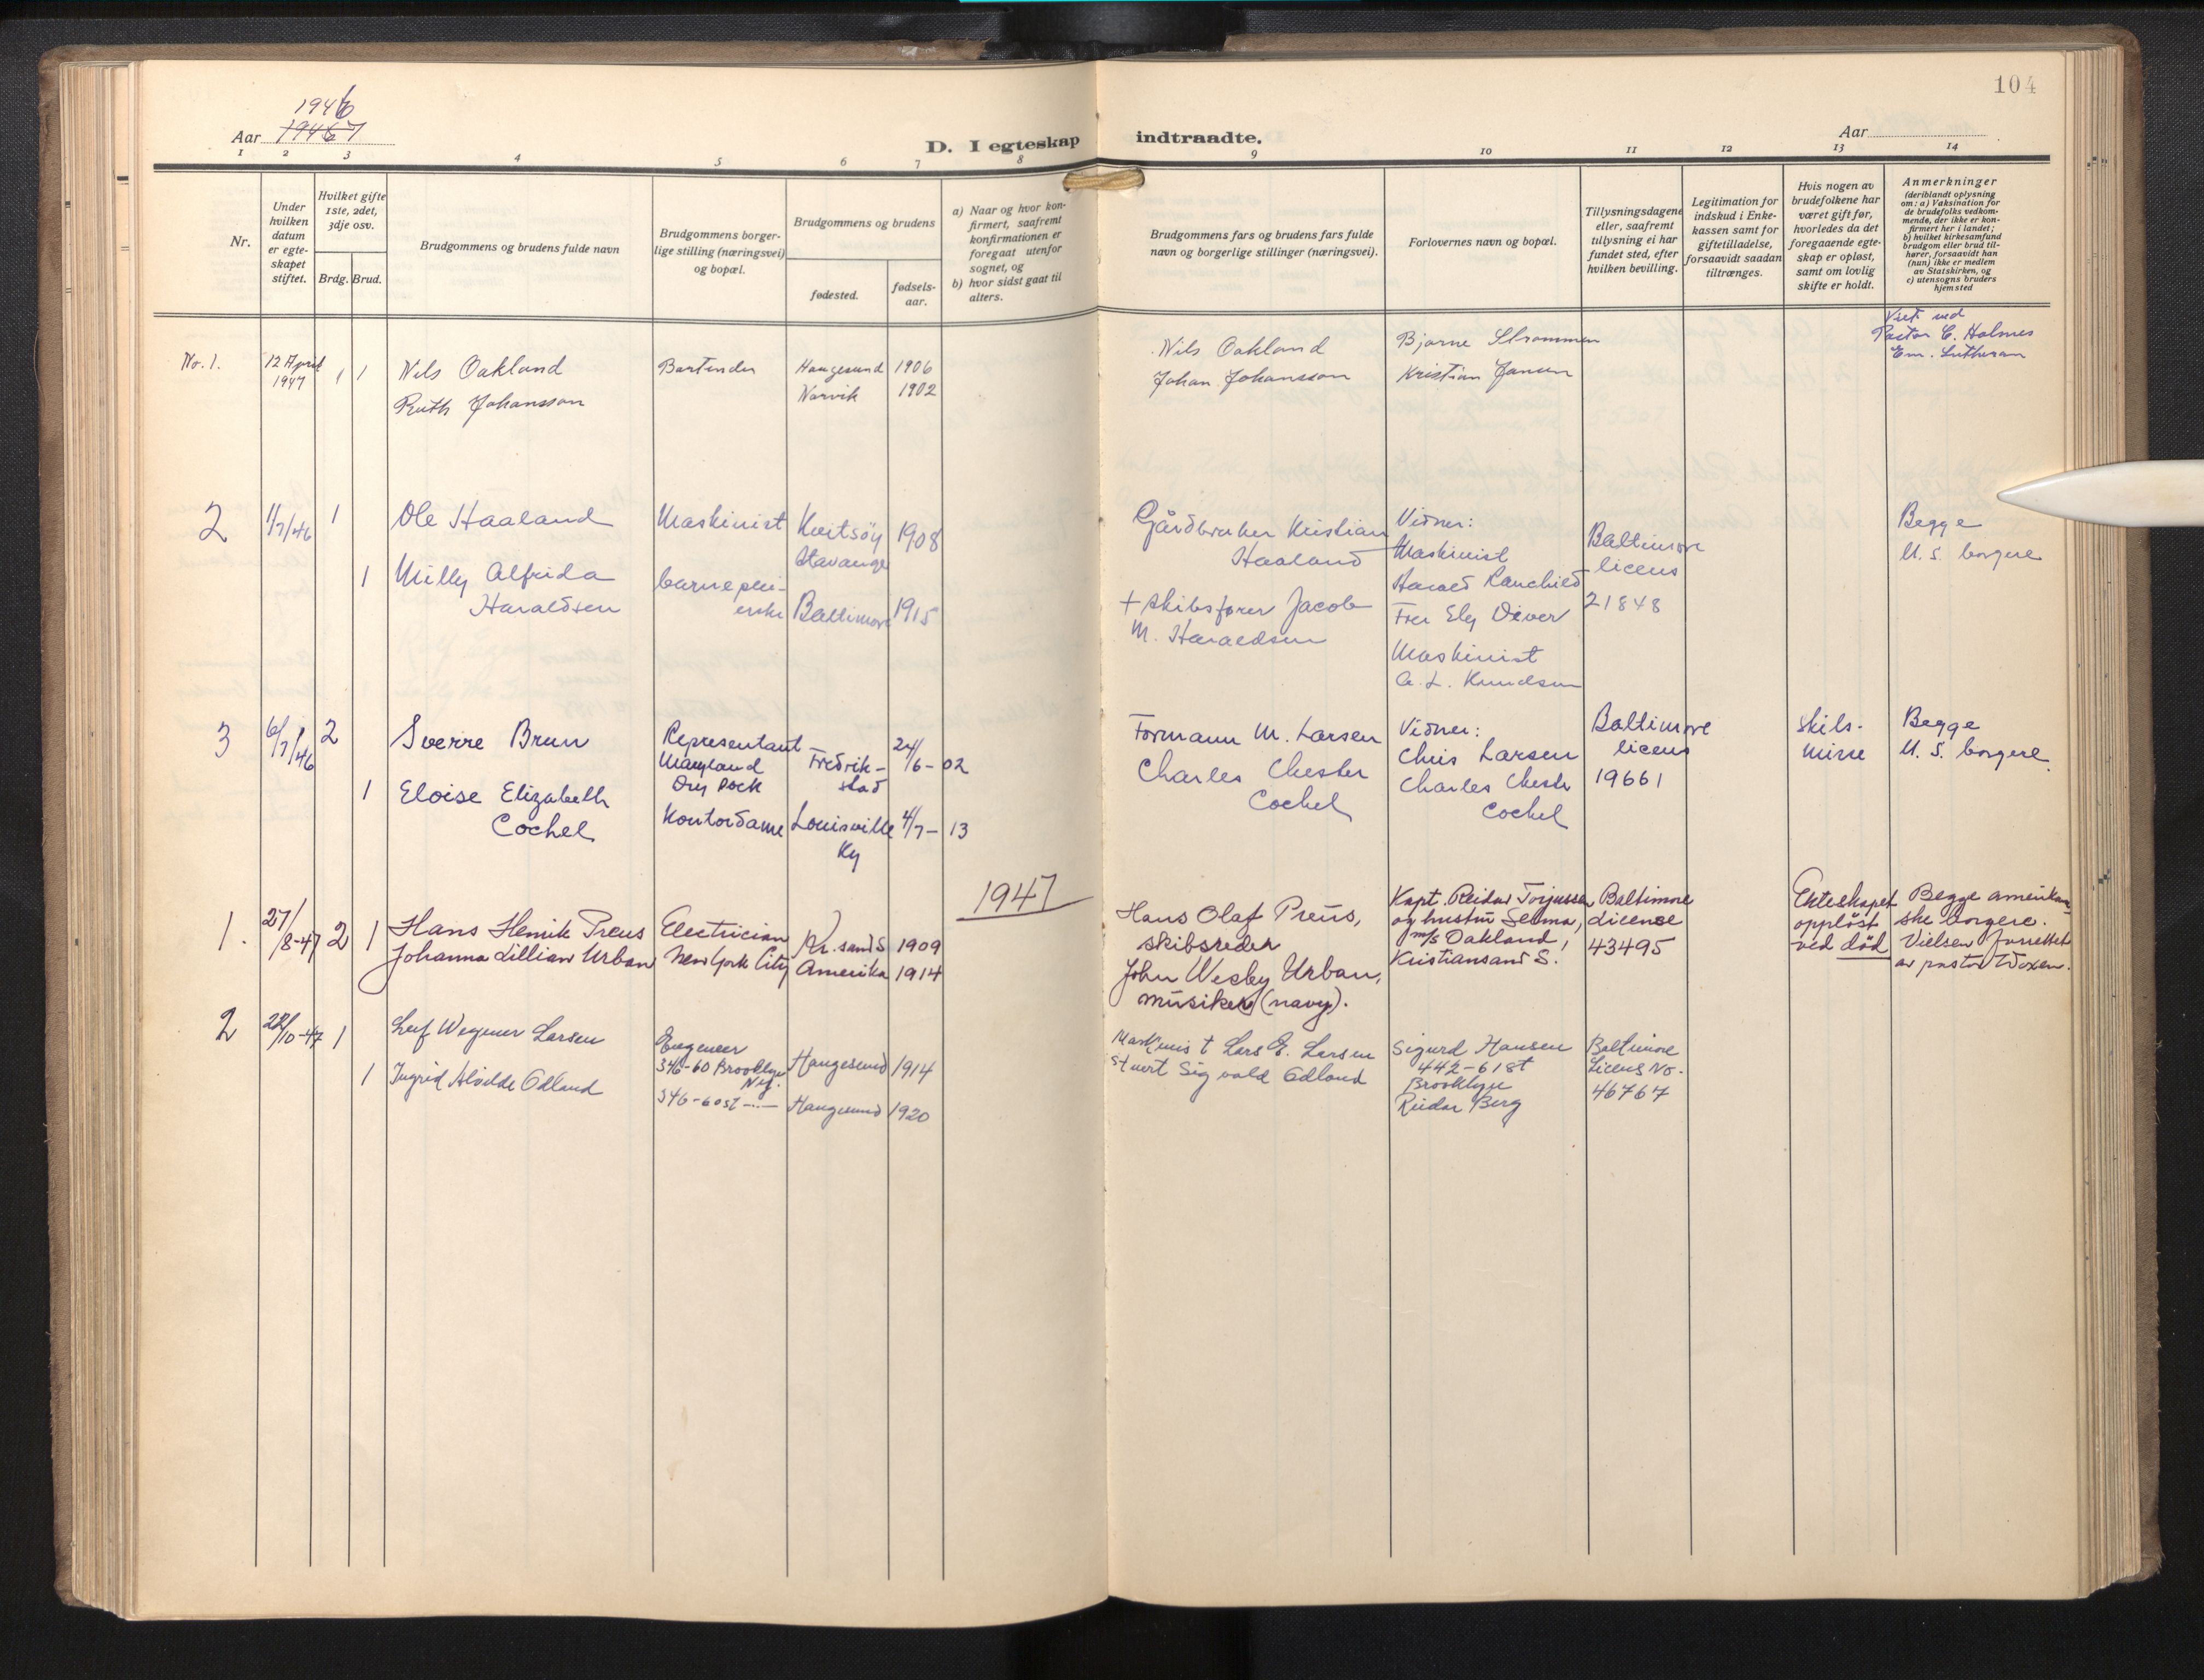 1946
Aar 19467
D. I egteskap indtraadte.
104
Aar
1 2 3 4 5 6 7 8 9 10 11 12 13 14
Nr.
Under hvilken datum er egte-skapet stiftet.
Hvilket gifte 1ste, 2det, 3dje osv.
Brdg. Brud.
Brudgommens og brudens fulde navn
Brudgommens borger-lige stilling (næringsvei) og bopæl.
Brudgommens og brudens
fødested.
fødsels-aar.
a) Naar og hvor kon-firmert, saafremt konfirmationen er foregaat utenfor sognet, og
b) hvor sidst gaat til alters.
Brudgommens fars og brudens fars fulde navn og borgerlige stillinger (næringsvei).
Forlovernes navn og bopæl.
Tillysningsdagene eller, saafremt tillysning ei har fundet sted, efter hvilken bevilling.
Legitimation for indskud i Enke-kassen samt for giftetilladelse, forsaavidt saadan tiltrænges.
Hvis nogen av brudefolkene har været gift før, hvorledes da det foregaaende egte-skap er opløst, samt om lovlig skifte er holdt.
Anmerkninger
(deriblandt oplysning om: a) Vaksination for de brudefolks vedkom-mende, der ikke er kon-firmert her i landet;
b) hvilket kirkesamfund brudgom eller brud til-hører, forsaavidt han (hun) ikke er medlem av Statskirken, og
c) utensogns bruders hjemsted
No. 1.
12 April
1947
1 1
Nils Oakland
Ruth Johansson
Bartender
Haugesund 1906
Narvik 1902
Nils Oakland
Johan Johansson
Bjarne Strommen
Kristian Jansen
Viet ved
Pastor C. Holmes
Em. Lutheran
2
1/7/46
1
Ole Haaland
Maskinist
Kvitsöy
Stavanger
1908
Gårdbruker Kristian
Haaland
Vidner:
Maskinist
Harald
Baltimore
licens
21848
Begge
U. S. borgere
1
Milly Alfrida
Haraldsen
barneplei-
erske
Baltimore
1915
+ Skibsfører Jacob
M. Haraldsen
Fru Ely
Maskinist
A. L. Knudsen
3
6/7/46
2
Sverre Brun
Representant
Maryland
Dry Dock
Fredrik-
stad
24/6-02
Formann M. Larsen
Vidner:
Chris Larsen
Baltimore
licens
19661
Skils-
misse
Begge
U. S. borgere.
1
Eloise Elizabeth
Cochel
Kontordame
Louisville
Ky
4/7-13
Charles Chester
Cochel
Charles Chester
Cochel
1947
1.
27/8-47
2 1
Hans Henrik Preus
Johanna Lillian Urban
Electrician
New York City
Kr. sand S 1909
Amerika 1914
Hans Olaf Preus,
skibsreder
John Wesley Urban,
musiker (navy).
Kapt. Reidar Torjussen
og hustru Selma,
m/s Oakland,
Kristiansand S.
Baltimore
License
43495
Ekteskapet
oppløst
ved död
Begge amerikan-
ske borgere.
Vielsen forrettet
av pastor Woxen.
2
22/10-47
1
Leif Wegner Larsen
Engeneer
346-60 Brooklyn
N.Y.
Haugesund 1914
Maskinist Lars E. Larsen
Stuert Sigvald Edland
Sigurd Hansen
442-61 St
Brooklyn
Reidar Berg
Baltimore
Licens No.
46767
1
Ingrid Alvilde Edland
346-60 st -"-
Haugesund 1920